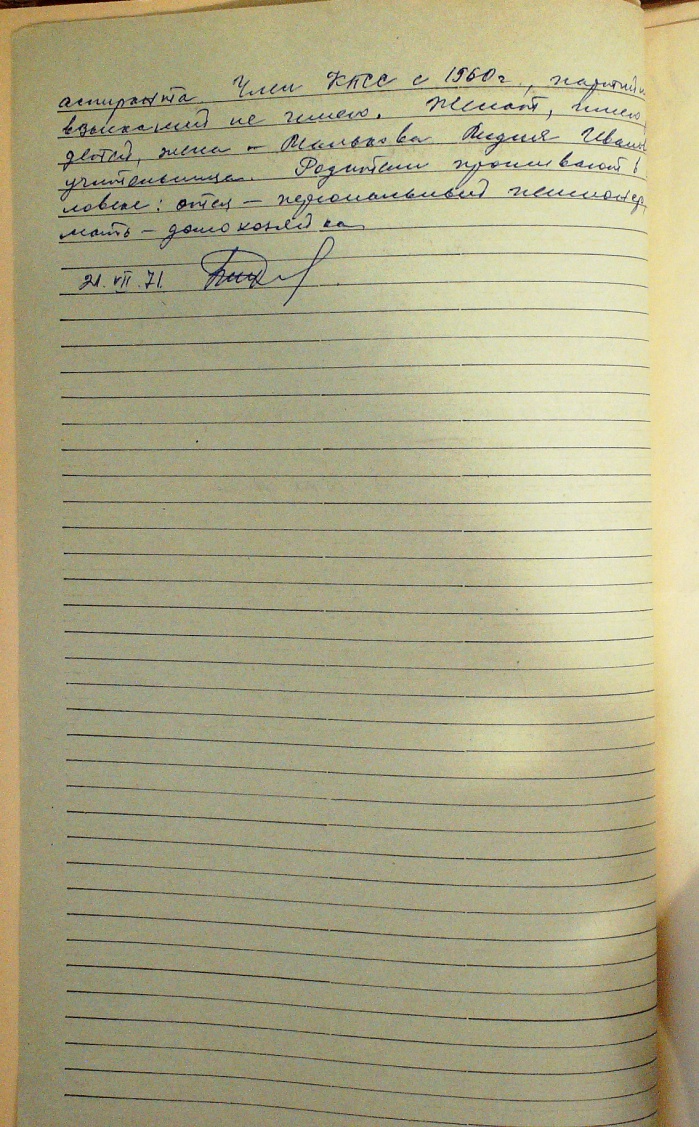 аспиранта. Член КПСС с 1960 г., партий
взысканий не имею. Женат, имею
детей, жена – Манькова Лидия Иван
учительница. Родители проживают в
ловске: отец – персональный пенсионер,
мать – домохозяйка.
21.VII.71.